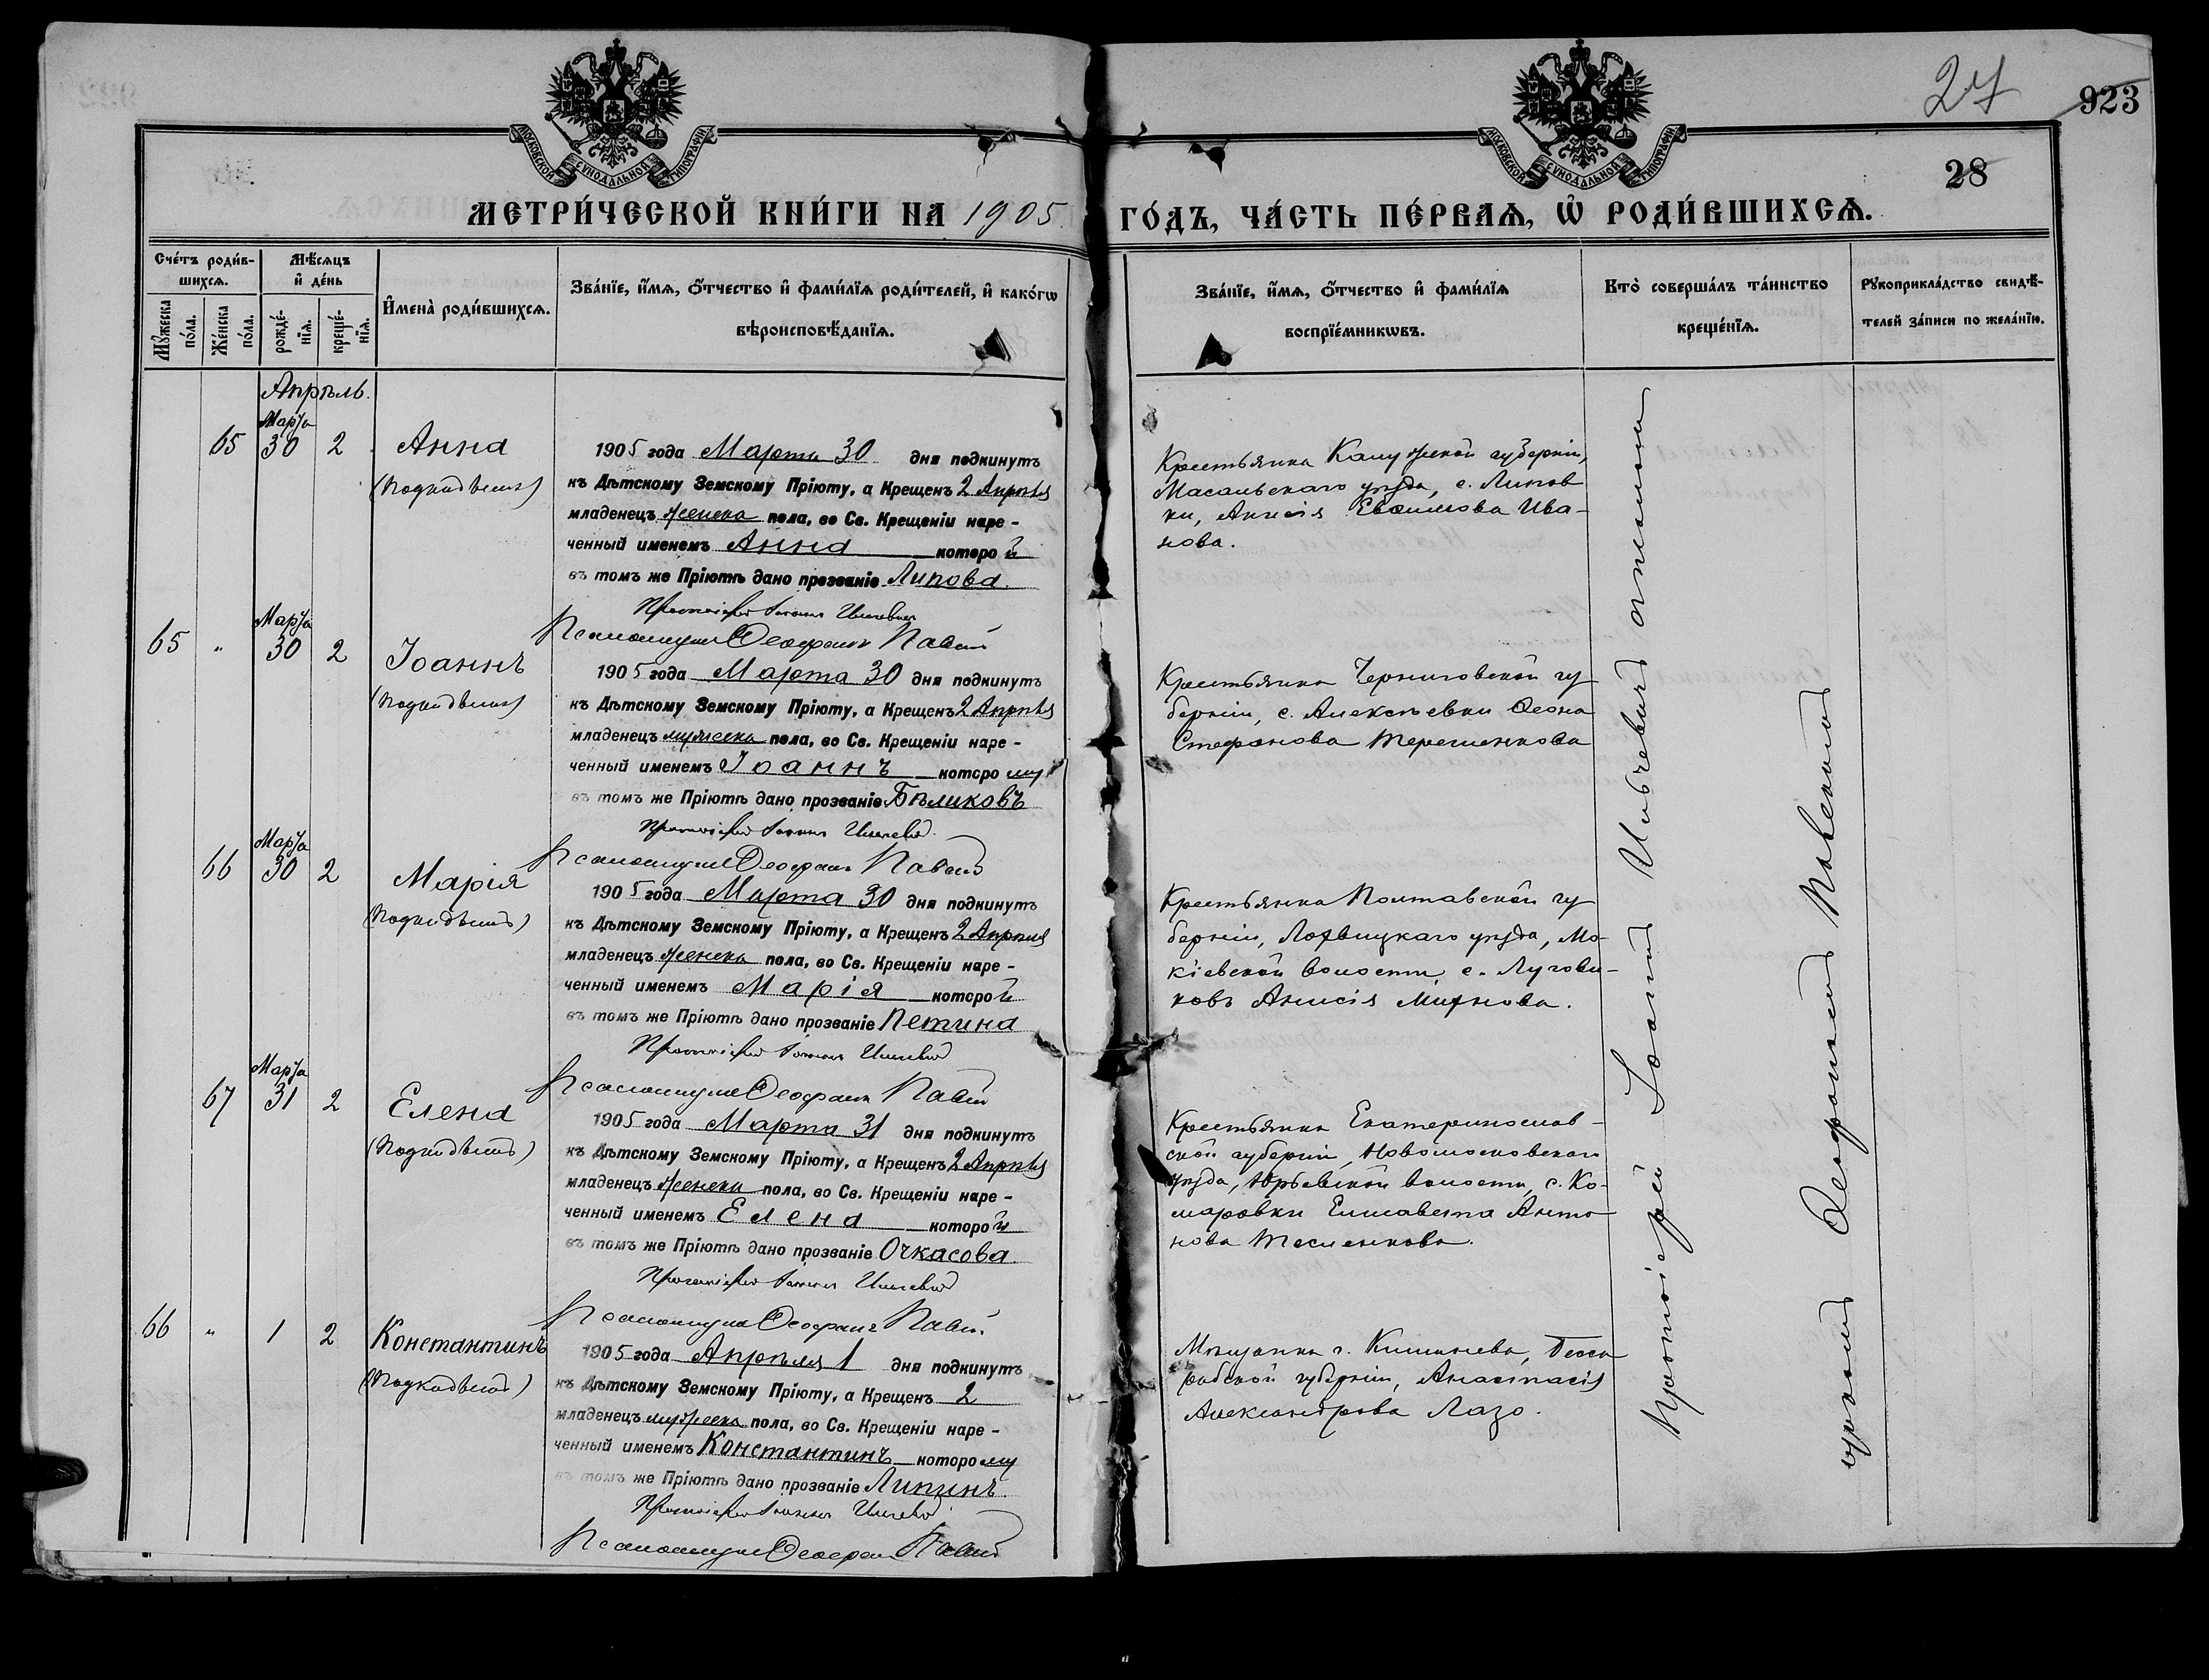 27
923
28
МОСКОВСКОЙ СѴНОДАЛЬНОЙ ТИПОГРАФІИ
МОСКОВСКОЙ СѴНОДАЛЬНОЙ ТИПОГРАФІИ
МЕТРИ́ЧЕСКОЙ КНИ́ГИ НА 1905 ГО́ДЪ, ЧА́СТЬ ПЕ́РВАѦ, Ѡ҆ РОДИ́ВШИХСѦ.
Сче́тъ роди́в-
шихсѧ.
Мѣ́сѧцъ
и҆ де́нь
Мꙋ́жеска
по́ла.
Же́нска
по́ла.
рожде́-
нїѧ.
креще́-
нїѧ.
И҆мена̀ роди́вшихсѧ.
Зва́нїе, и҆́мѧ, ѻ҆́тчество и҆ фами́лїѧ роди́телей, и҆ како́гѡ
вѣроисповѣ́данїѧ.
Зва́нїе, и҆́мѧ, ѻ҆́тчество и҆ фами́лїѧ
воспрїе́мникѡвъ.
Кто̀ соверша́лъ та́инство
креще́нїѧ.
Рꙋкоприкла́дство свидѣ́-
телей за́писи по жела́нїю.
Апрѣль.
Марта
65 30 2 Анна
(Подкидышъ)
1905 года Марта 30 дня подкинутъ
къ Дѣтскому Земскому Пріюту, а Крещенъ 2 Апрѣля
младенецъ женска пола, во Св. Крещеніи наре-
ченный именемъ Анна которой
въ томъ же Пріютѣ дано прозваніе Липова.
Протоіерей Іоаннъ Ильчевичъ
Псаломщикъ Ѳеофанъ
Крестьянка Калужской губерніи,
Масальскаго уѣзда, с. Липов
ки, Анисія Евѳимова Ива-
нова.
Марта
65 " 30 2 Іоаннъ
(Подкидышъ)
1905 года Марта 30 дня подкинутъ
къ Дѣтскому Земскому Пріюту, а Крещенъ 2 Апрѣля
младенецъ мужеска пола, во Св. Крещеніи наре-
ченный именемъ Іоаннъ которому
въ томъ же Пріютѣ дано прозваніе Бѣликовъ
Протоіерей Іоаннъ Ильчевичъ
Псаломщикъ Ѳеофанъ
Крестьянка Черниговской гу
берніи, с. Алексѣевки
Стефанова Терешенкова
Марта
66 30 2 Марія
(Подкидышъ)
1905 года Марта 30 дня подкинутъ
къ Дѣтскому Земскому Пріюту, а Крещенъ 2 Апрѣля
младенецъ женска пола, во Св. Крещеніи наре-
ченный именемъ Марія которой
въ томъ же Пріютѣ дано прозваніе Петина
Протоіерей Іоаннъ Ильчевичъ
Псаломщикъ Ѳеофанъ
Крестьянка Полтавской гу
берніи, Лохвицкаго уѣзда, Мо-
кіевской волости, с. Лугови-
ковъ Анисія
Марта
67 31 2 Елена
(Подкидышъ)
1905 года Марта 31 дня подкинутъ
къ Дѣтскому Земскому Пріюту, а Крещенъ 2 Апрѣля
младенецъ женска пола, во Св. Крещеніи наре-
ченный именемъ Елена которой
въ томъ же Пріютѣ дано прозваніе Очкасова.
Протоіерей Іоаннъ Ильчевичъ
Псаломщикъ Ѳеофанъ
Крестьянка Екатеринослав-
ской губерніи, Новомосковскаго
уѣзда, Юрьевской волости, с. Ко-
маровки Елисавета Анто
нова Тесленкова.
66 " 1 2 Константинъ
(Подкидышъ)
1905 года Апрѣля 1 дня подкинутъ
къ Дѣтскому Земскому Пріюту, а Крещенъ 2
младенецъ мужеска пола, во Св. Крещеніи наре-
ченный именемъ Константинъ которому
въ томъ же Пріютѣ дано прозваніе Липинъ.
Протоіерей Іоаннъ Ильчевичъ
Псаломщикъ Ѳеофанъ
Мѣщанка г. Кишинева, Бесса
рабской губерніи, Анастасія
Александрова Лазо.
Протоіерей Іоаннъ Ильчевичъ съ псаломщи
Ѳеофаномъ